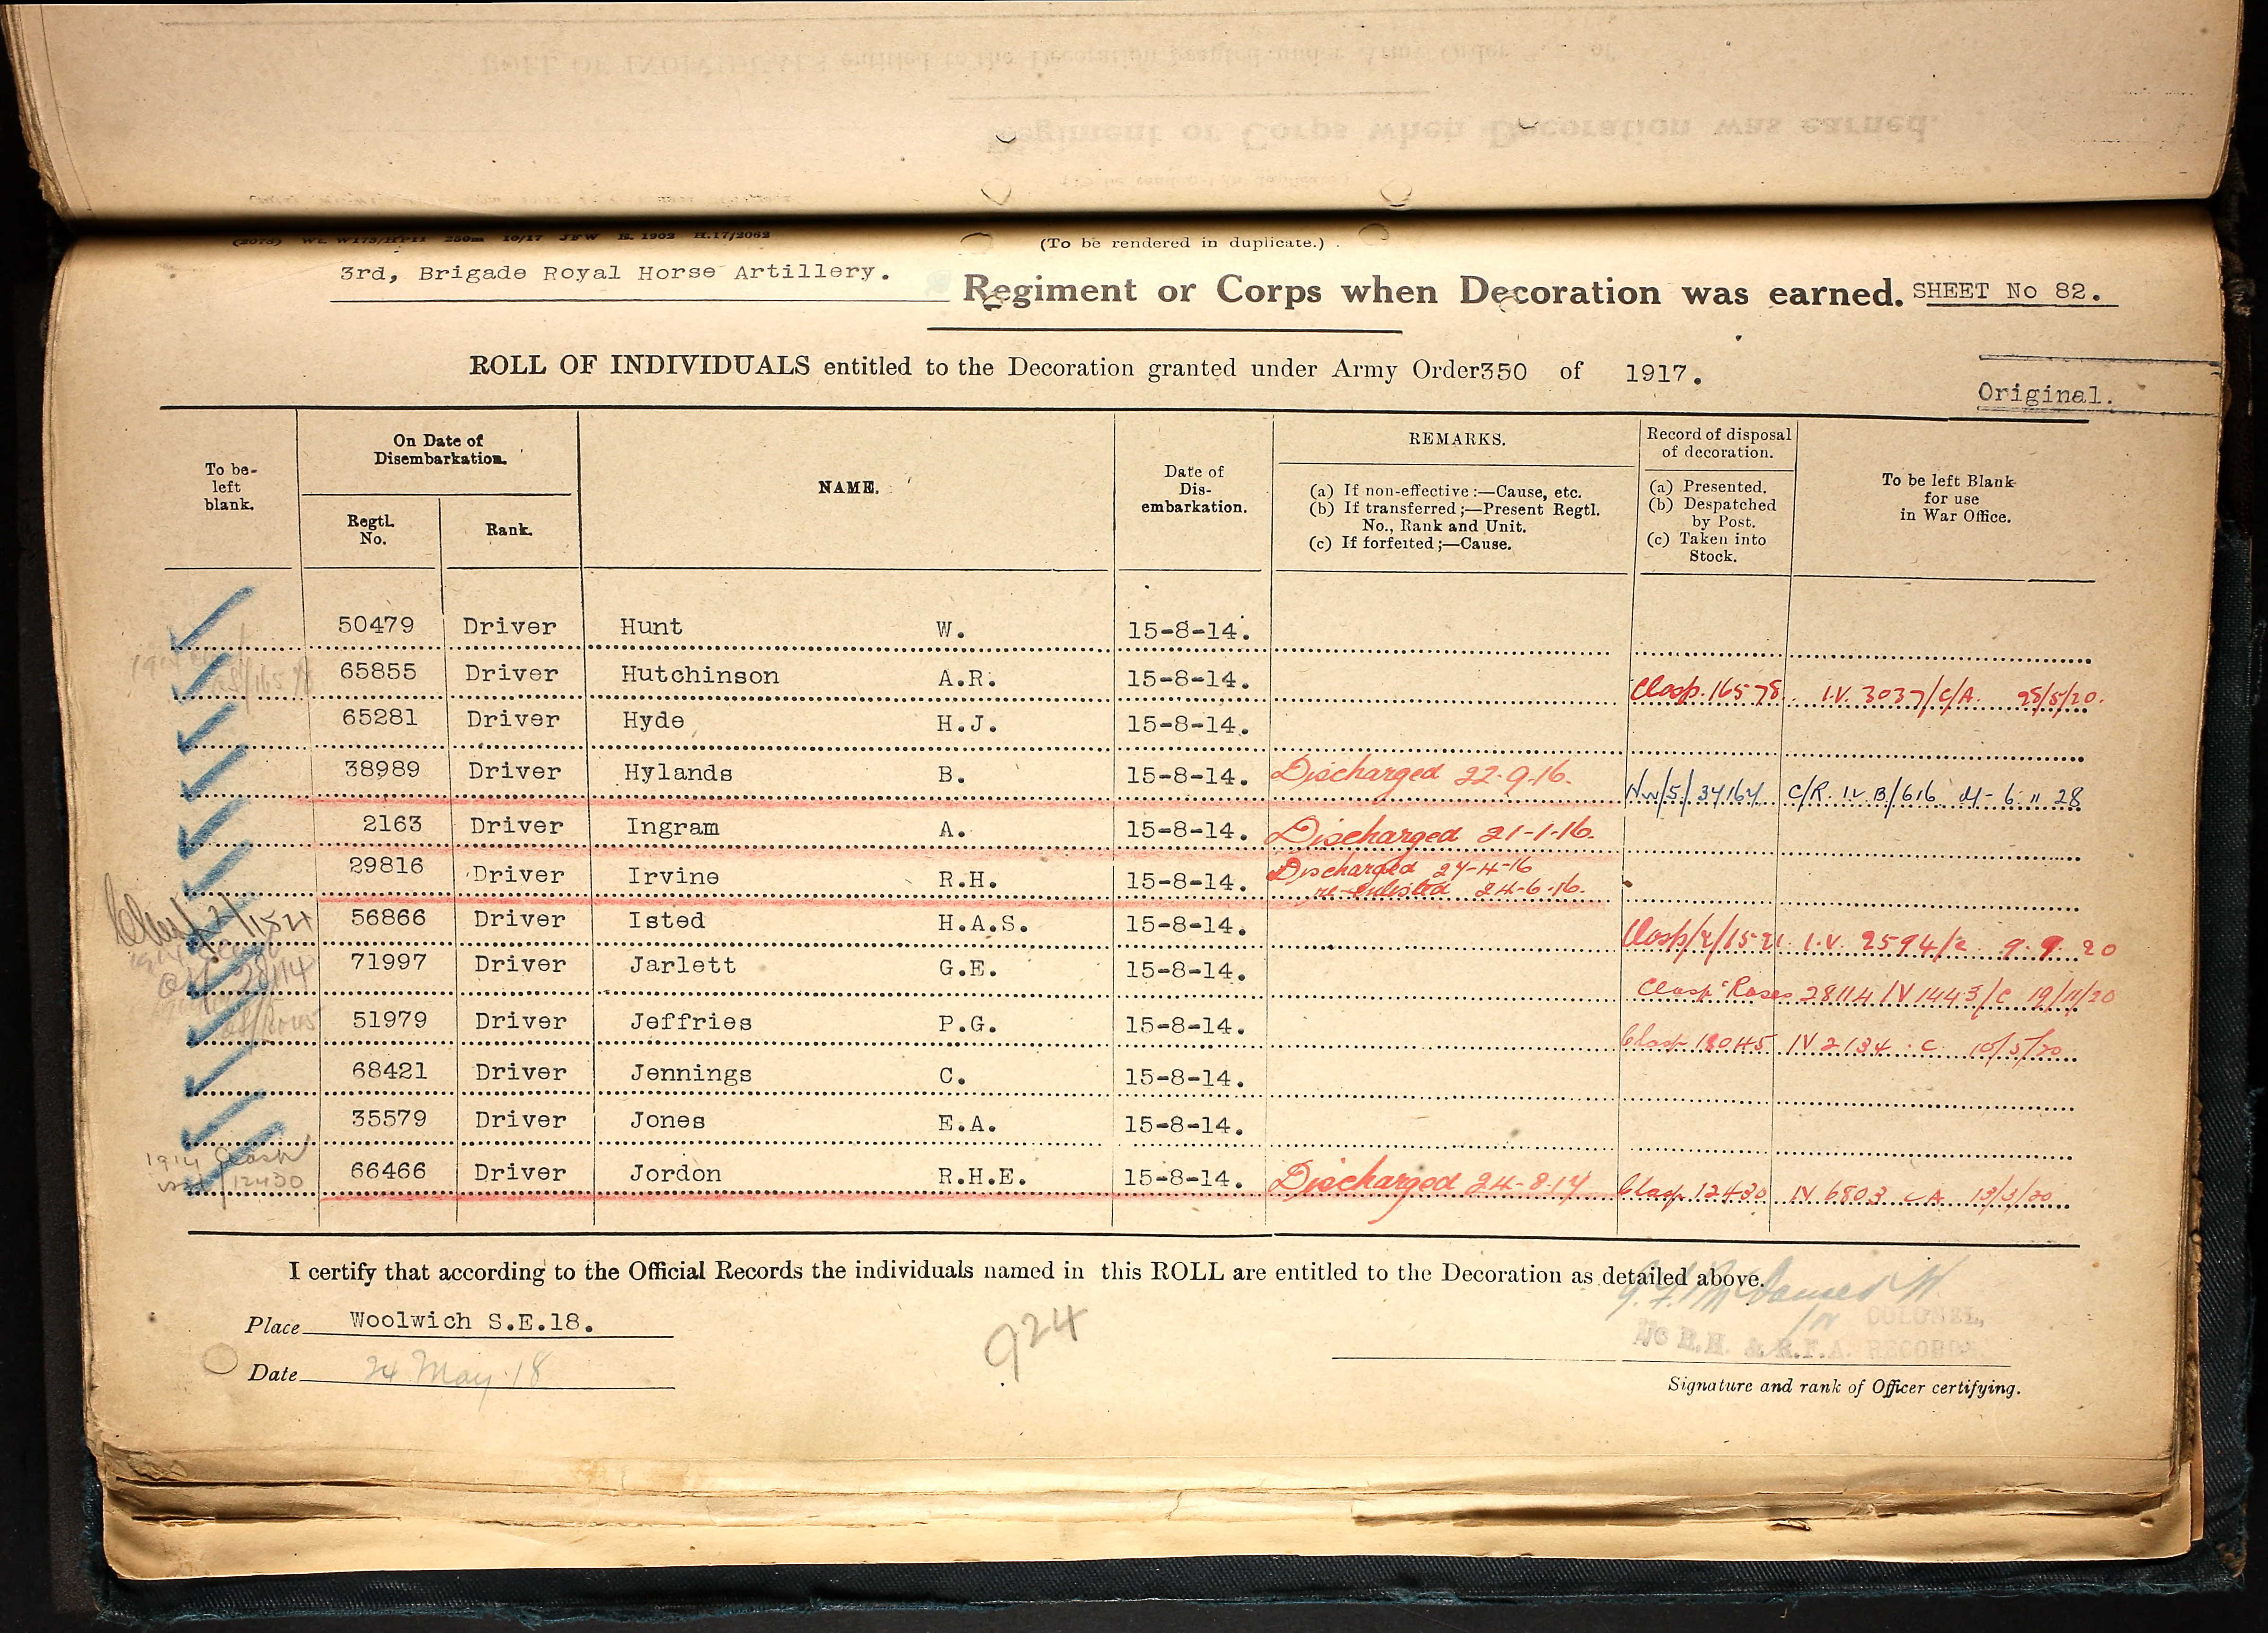 (To be rendered in duplicate.)
3rd, Brigade Royal Horse Artillery. Regiment or Corps when Decoration was earned. SHEET No 82.
ROLL OF INDIVIDUALS entitled to the Decoration granted under Army Order 350 of 1917.
Original.
To be left blank.
On Date of Disembarkation.
Regtl. No.
Rank.
NAME.
Date of Dis-embarkation.
REMARKS.
(a) If non-effective:—Cause, etc.
(b) If transferred;—Present Regtl. No., Rank and Unit.
(c) If forfeited;—Cause.
Record of disposal of decoration.
(a) Presented.
(b) Despatched by Post.
(c) Taken into Stock.
To be left Blank for use in War Office.
50479 Driver Hunt W. 15-8-14.
65855 Driver Hutchinson A.R. 15-8-14. Clasp. 16578. I.V. 3037/C/A. 28/5/20.
65281 Driver Hyde H.J. 15-8-14.
38989 Driver Hylands B. 15-8-14. Discharged 22.9.16. NW/5/34164 C/R IV B/616 6 11 28
2163 Driver Ingram A. 15-8-14. Discharged 21-1-16.
29816 Driver Irvine R.H. 15-8-14. Discharged 27-4-16
re-enlisted 24-6-16.
56866 Driver Isted H.A.S. 15-8-14. Clasp/2/1521 I.V. 2594/2 9.9.20
71997 Driver Jarlett G.E. 15-8-14. Clasp Roses 28114 IV 1443/C 19/11/20
51979 Driver Jeffries P.G. 15-8-14. Clasp IV 2134 C 10/5/20
68421 Driver Jennings C. 15-8-14.
35579 Driver Jones E.A. 15-8-14.
1914 Clasp
12430
66466 Driver Jordon R.H.E. 15-8-14. Discharged 24-8-17 Clasp 12430 IV 6803 CA 13/3/20
I certify that according to the Official Records the individuals named in this ROLL are entitled to the Decoration as detailed above.
for COLONEL,
Place Woolwich S.E.18.
924
I/c R.H. & R.F.A. RECORDS.
Date 24 May 18
Signature and rank of Officer certifying.